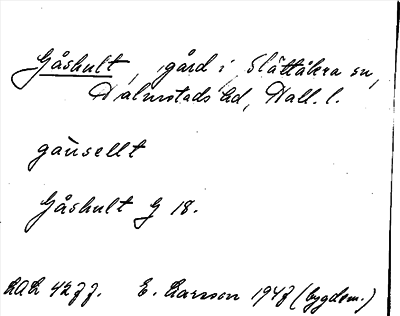 Gåshult, gård i Slättåkra sn,
Halmstads hd, Hall. l.
gåusellt
Gåshult G 18.
E. Larsson 1947 (bygdem.)